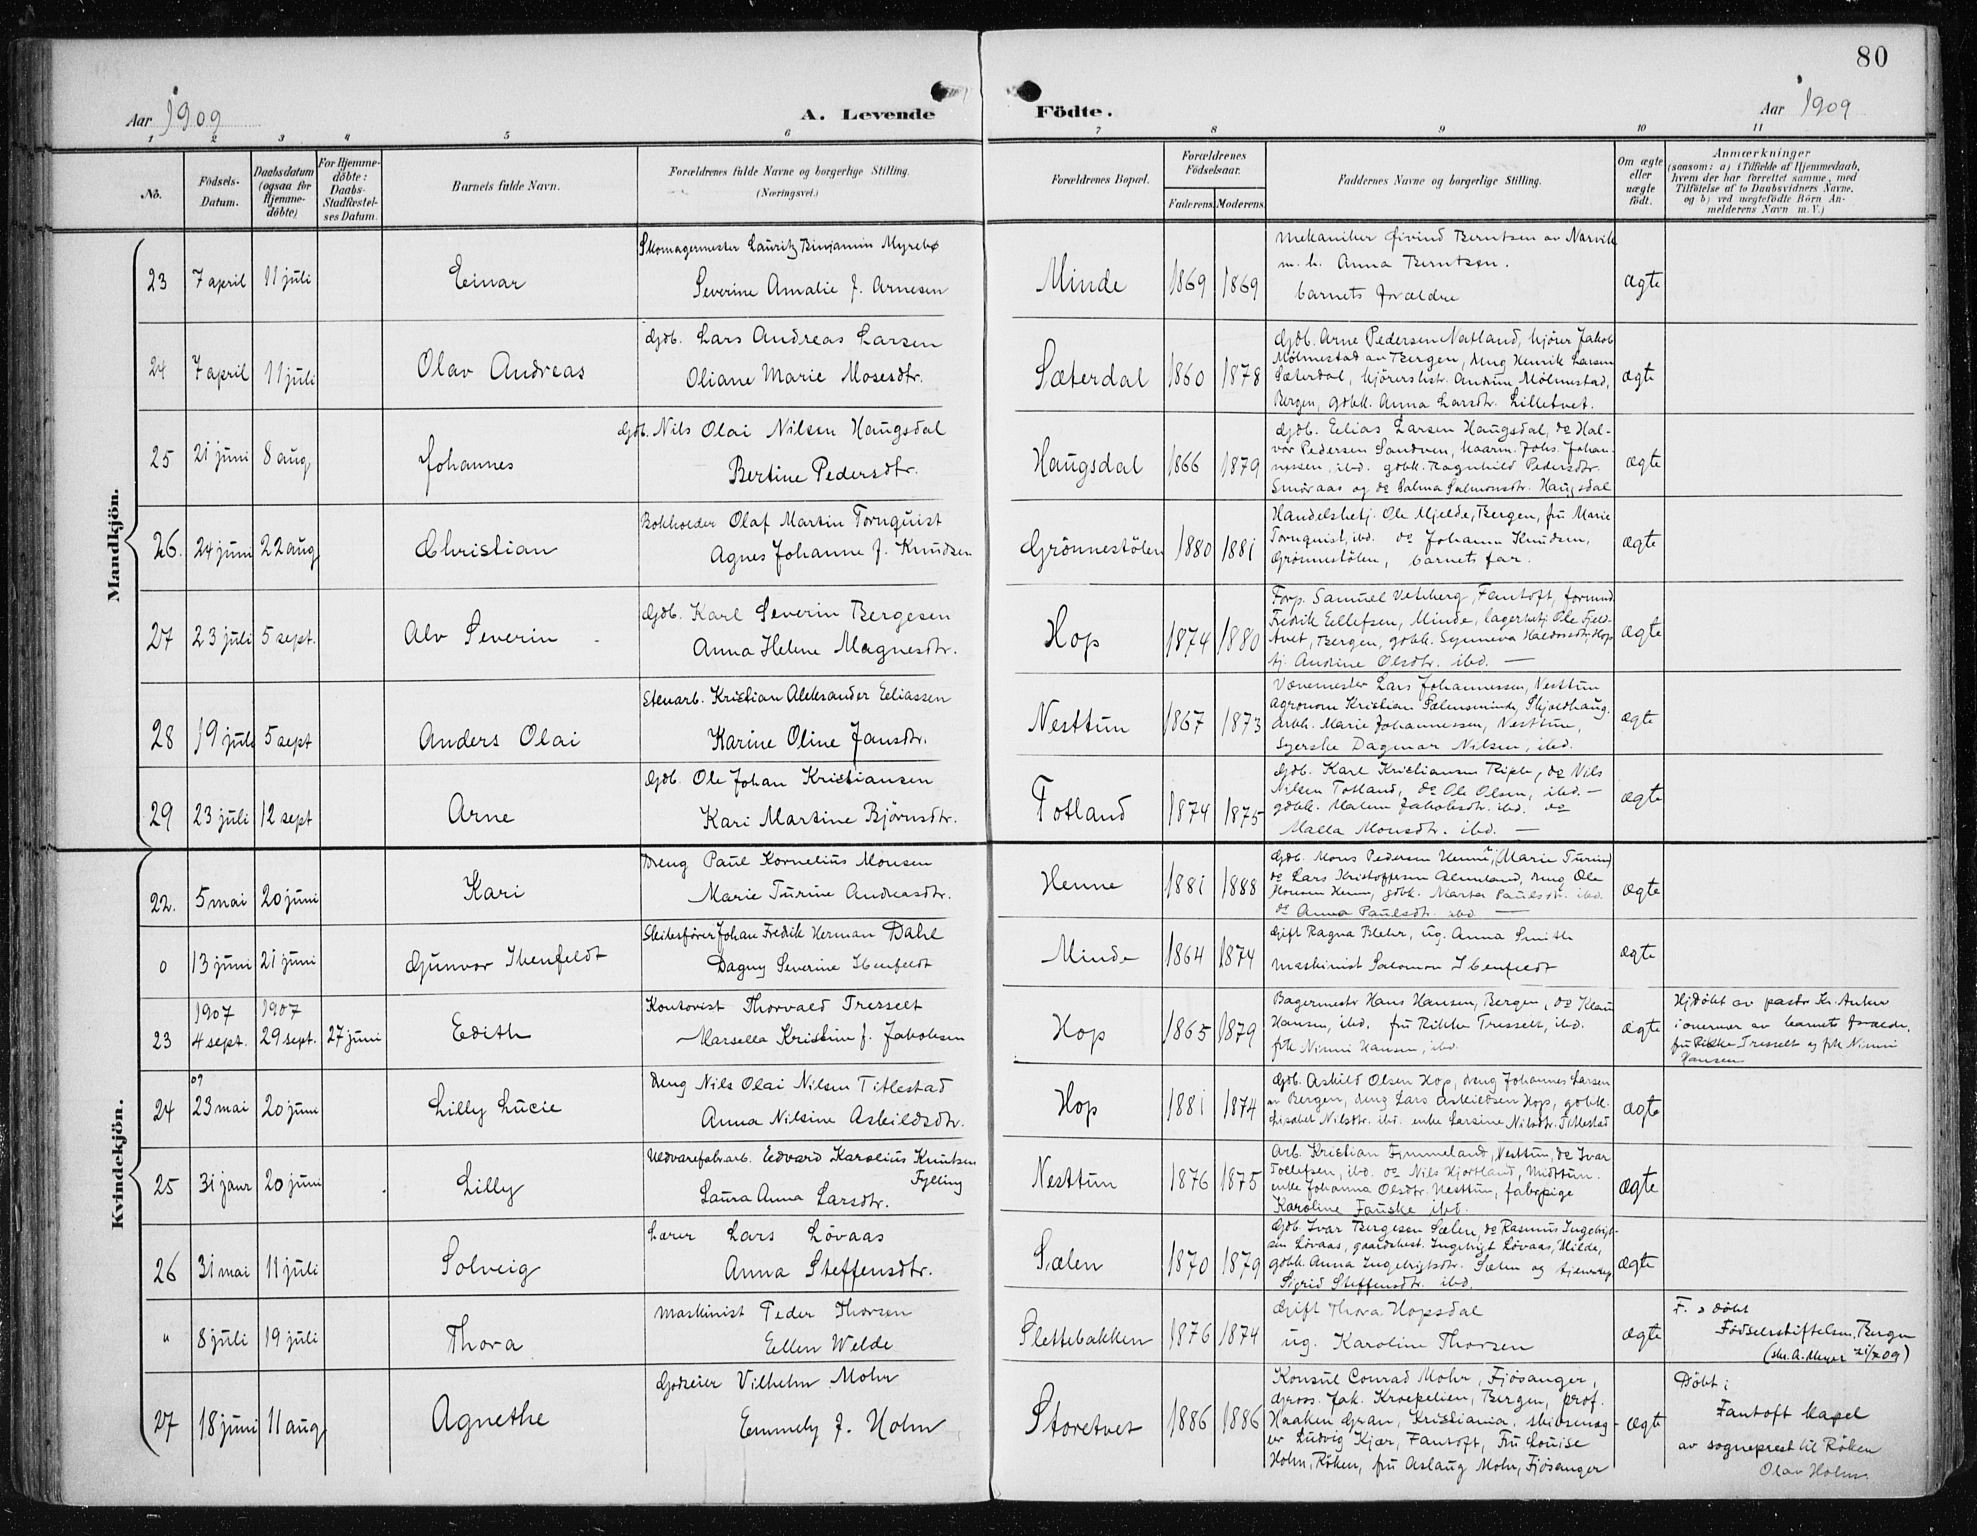 80
Aar 1909
A. Levende Födte.
Aar 1909
1 2 3 4 5 6 7 8 9 10 11
No.
Födsels-Datum.
Daabsdatum (ogsaa for Hjemme-döbte)
For Hjemme-döbte: Daabs-Stadfæstel-ses Datum.
Barnets fulde Navn.
Forældrenes fulde Navne og borgerlige Stilling.
(Næringsvei.)
Forældrenes Bopæl.
Forældrenes Födselsaar.
Faderens. Moderens.
Faddernes Navne og borgerlige Stilling.
Om ægte eller uægte födt.
Anmærkninger
(saasom: a) i Tilfælde af Hjemmedaab,
hvem der har forrettet samme, med
Tilföielse af to Daabsvidners Navne,
og b) ved uægtefödte Börn An-
melderens Navn m. V.)
Mandkjön.
23 7 april 11 juli Einar
Skomagermester Lauritz Binjamin Myrebø
Severine Amalie f. Arnesen
Minde 1869 1869
Mekaniker Øivind Berntsen av Narvik
m. h. Anna Berntsen.
barnets forældre
ægte
24 7 april 11 juli Olav Andreas
Gdb. Lars Andreas Larsen
Oliane Marie Mosesdtr.
Sæterdal 1860 1878
Gdb. Arne Pedersen Natland, kjører Jakob
Mölmestad av Bergen, dreng Henrik Larsen
Sæterdal, kjørershst. Andrine Mölmestad,
Bergen, gdbk. Anna Larsdtr. Lilletvet.
ægte
25 21 juni 8 aug Johannes
Gdb. Nils Olai Nilsen Haugsdal
Bertine Pedersdtr.
Haugsdal 1866 1879
Gdb. Elias Larsen Haugsdal, do Hal-
vor Pedersen Sandven, Johs. Johan-
nessen, ibid. gdbk. Ragnhild Pedersdtr.
Smøraas og do Salma Salmonsdtr. Haugsdal
ægte
26. 24 juni 22 aug Christian
Bokholder Olaf Martin Tornquist
Agnes Johanne f. Knudsen
Grönnestölen 1880 1881
Handelsbetj. Ole Mjelde, Bergen, fru Marie
Tornquist, ibd. do Johanna Knudsen,
Grönnestölen, barnets far.
ægte
27 23 juli 5 sept. Alv Severin
Gdb. Karl Severin Bergesen
Anna Helene Magnesdtr.
Hop 1874 1880
Forp. Samuel Vetberg, Fantoft, formand
Fredrik Ellefsen, Minde, lagerbetj. Ole Fjeld-
tvet, Bergen, gdbk. Synneva Haldorsdtr. Hop
tj. Andrine Olsdtr. ibd. —
ægte
28 19 juli 5 sept Anders Olai
Stenarb. Kristian Aleksander Eliassen
Karine Oline Jansdtr.
Nesttun 1867 1873
Lars Johannessen, Nesttun
Agronom Kristian Sælensminde, Skjoldhaug.
arbk. Marie Johannessen, Nesttun,
Syerske Dagmar Nilsen, ibd.
ægte
29 23 juli 12 sept Arne
Gdb. Ole Johan Kristiansen
Kari Martine Bjørnsdtr.
Totland 1874 1875
Gdb. Karl Kristiansen Riple, do Nils
Nilsen Totland, do Ole Olsen, ibd. —
gdbk. Malene Jakobsdtr. ibd. do
Malla Monsdtr. ibd. —
ægte
Kvindekjön.
22. 5 mai 20 juni Kari
Dreng Paul Kornelius Monsen
Marie Turine Andreasdtr.
Henne 1881 1888
Gdb. Mons Pedersen Henne,
do Lars Kristoffersen Almeland, dreng Ole
Monsen Henne, gdbk. Marta Paulsdtr. ibd.
do Anna Paulsdtr. ibd —
ægte
0 13 juni 21 juni Gunvor Ibenfeldt
Skibsfører Johan Fredrik Herman Dahl
Dagny Severine Ibenfeldt
Minde 1864 1874
Gift Ragna Blehr, ug. Anna Smith
maskinist Salomon Ibenfeldt
ægte
23 1907 4 sept. 1907 29 sept. 27 juni Edith
Kontorist Thorvald Tresselt
Marsella Kristine f. Jakobsen
Hop 1865 1879
Bagermestr Hans Hansen, Bergen, do Klaus
Hansen, ibid. fru Rikke Tresselt, ibd.
frk Ninni Hansen, ibd.
ægte
Hjdøbt av pastor Kr. Anker
i nærvær av barnets forældre,
fru Rikke Tresselt og frk Ninni
Hansen
24 09 23 mai 20 juni Lilly Lucie
Dreng Nils Olai Nilsen Titlestad
Anna Nilsine Askildsdtr.
Hop 1881 1874
Gdb. Askild Olsen Hop, dreng Johannes Larsen
av Bergen, dreng Lars Askildsen Hop, gdbk.
Lisabet Nilsdtr. ibd. enke Larsine Nilsdtr. Titlestad
ægte
25 31 janr 20 juni Lilly
Uldvarefabarb. Edvard Karolius Knutsen
Fylling
Laura Anna Larsdtr.
Nesttun 1876 1875
Arb. Kristian Tymmeland, Nesttun, do Ivar
Tollefsen, ibd. do Nils Hjortland, Midttun.
enke Johanna Olsdtr. Nesttun, fabrpige
Karoline Fauske ibd.
ægte
26 31 mai 11 juli Solveig
Lærer Lars Løvaas
Anna Steffensdtr.
Sælen 1870 1879
Gdb. Ivar Bergesen Sælen, do Rasmus Ingebrigt-
sen Løvaas, gaardsbest. Ingebrigt Løvaas, Milde,
gdbk. Anna Ingebrigtsdtr. Sælen og tjenestep
Sigrid Steffensdtr. ibd.
ægte
" 8 juli 19 juli Thora
Maskinist Peder Thorsen
Ellen Welde
Slettebakken 1876 1874
Gift Thora Hopsdal
ug. Karoline Thorsen
ægte
F. & døbt
Fødselsstiftelsen, Bergen
(skr. A. Meyer 21/7 09)
27 18 juni 11 aug Agnethe
Godseier Vilhelm Mohr
Emmely f. Holm
Storetvet 1886 1886
Konsul Conrad Mohr, Fjösanger,
gross. Jak. Kroepelien, Bergen, prof.
Haaken Gran, Kristiania, skibsreder
Ludvig Kjær, Fantoft, Fru Louise
Holm, Röken, fru Aslaug Mohr, Fjösanger
ægte
Døbt i
Fantoft kapel
av sogneprest til Röken
Olav Holm.